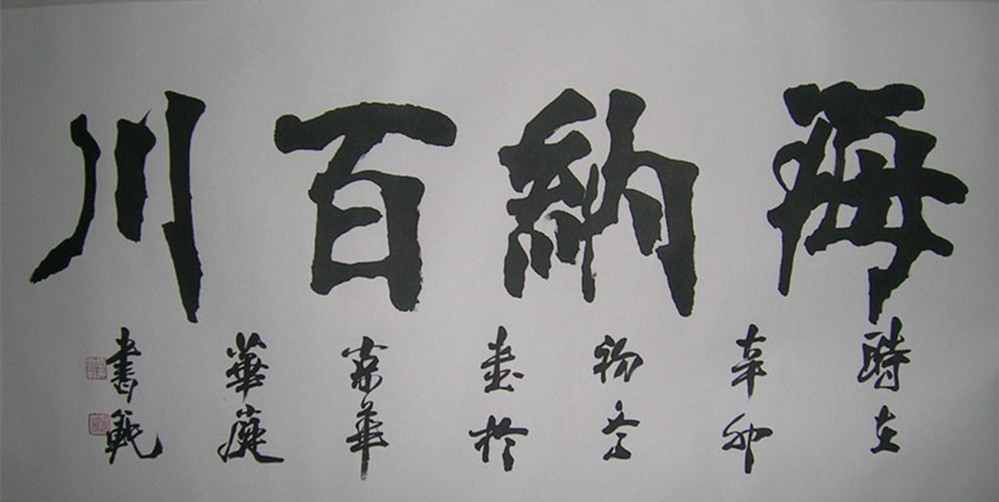 海納百川
時在
辛卯
初冬
書於
華
華庭
書範